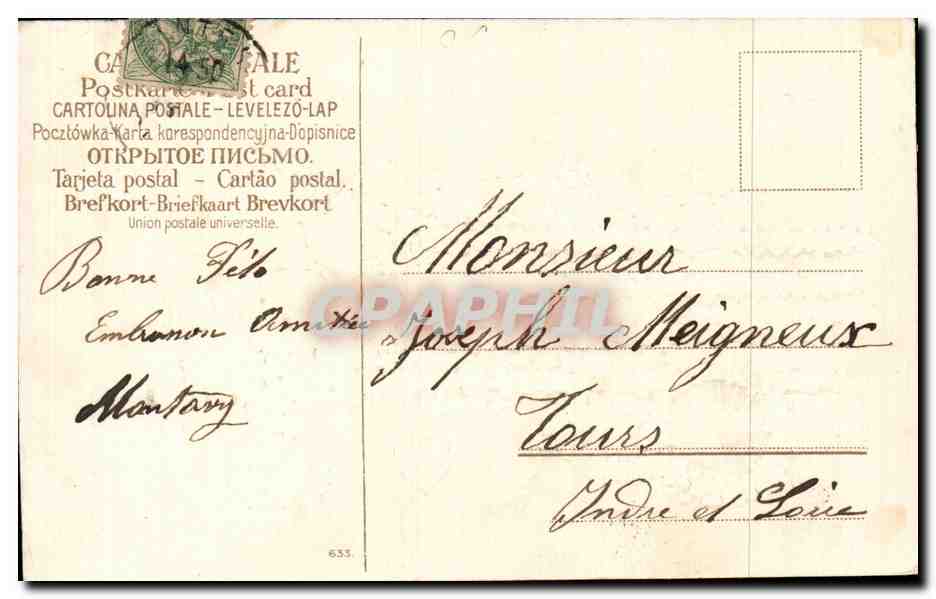 CA ALE
Postkarte Post card
CARTOLINA POSTALE – LEVELEZÖ-LAP
Pocztówka-Karta korespondencyjna-Dopisnice
ОТКРЫТОЕ ПИСЬМО.
Tarjeta postal – Cartão postal.
Brefkort-Briefkaart Brevkort
Union postale universelle.
14 50
Bonne Fête
Amitié
Montavy
633.
Monsieur
Joseph Meigneux
Tours
Indre et Loire
CPAPHIL